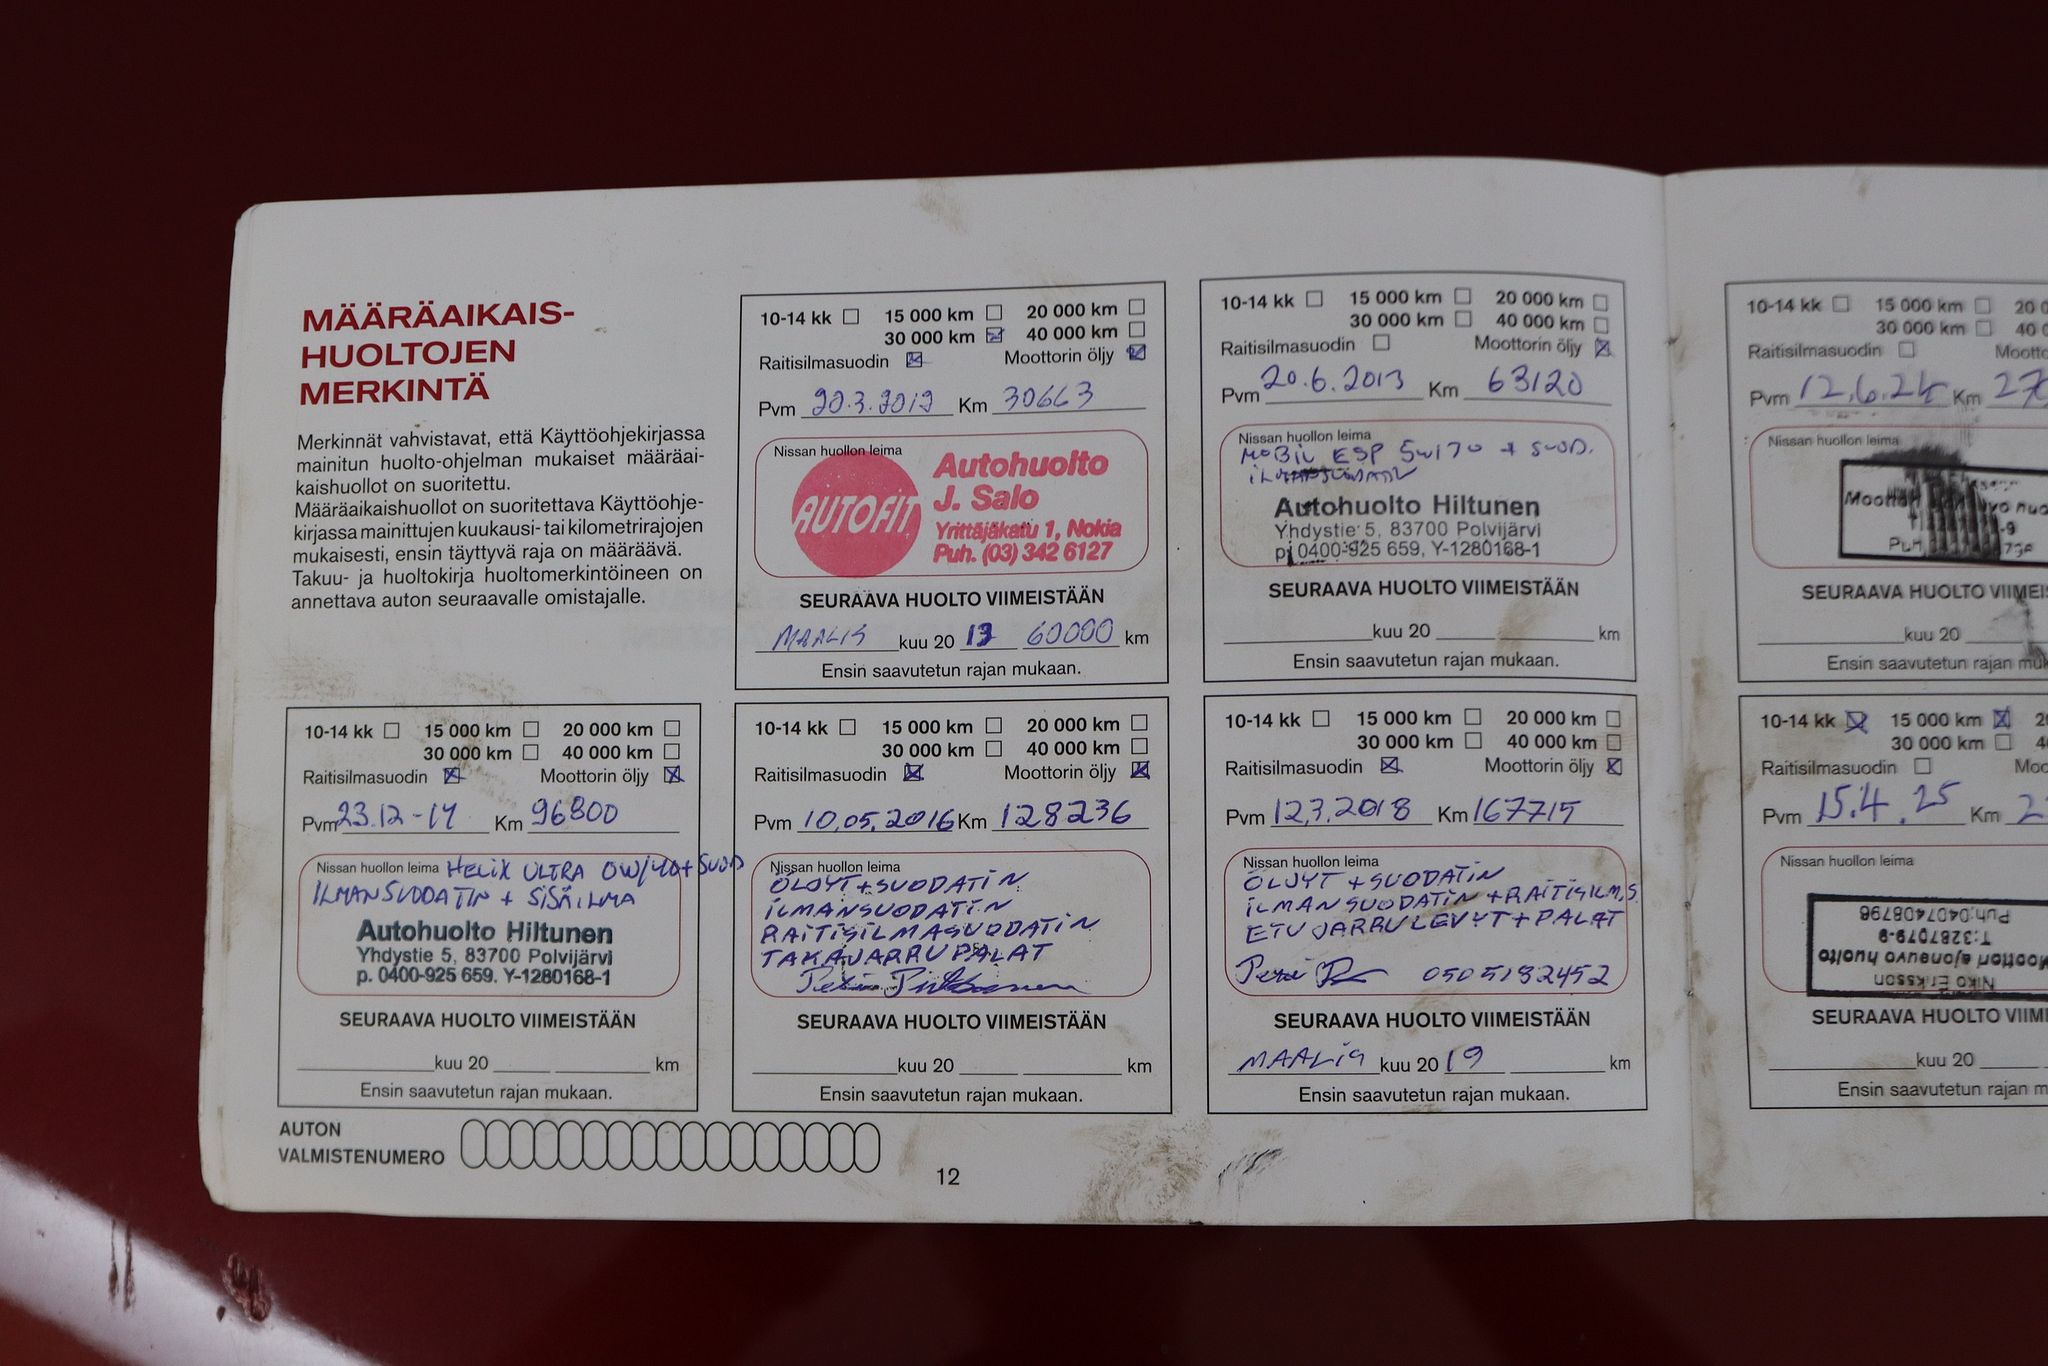 MÄÄRÄAIKAIS-
HUOLTOJEN
MERKINTÄ
Merkinnät vahvistavat, että Käyttöohjekirjassa
mainitun huolto-ohjelman mukaiset määräai-
kaishuollot on suoritettu.
Määräaikaishuollot on suoritettava Käyttöohje-
kirjassa mainittujen kuukausi- tai kilometrirajojen
mukaisesti, ensin täyttyvä raja on määräävä.
Takuu- ja huoltokirja huoltomerkintöineen on
annettava auton seuraavalle omistajalle.
10-14 kk 15 000 km 20 000 km
30 000 km 40 000 km
Raitisilmasuodin Moottorin öljy
Pvm 20.3.2012 Km 30663
Nissan huollon leima
AUTOFIT
Autohuolto
J. Salo
Yrittäjäkatu 1, Nokia
Puh. (03) 342 6127
SEURAAVA HUOLTO VIIMEISTÄÄN
MAALIS kuu 20 13 60000 km
Ensin saavutetun rajan mukaan.
10-14 kk 15 000 km 20 000 km
30 000 km 40 000 km
Raitisilmasuodin Moottorin öljy
Pvm 20.6.2013 Km 63120
Nissan huollon leima
MOBIL ESP 5W/30 + SUOD.
Autohuolto Hiltunen
Yhdystie 5, 83700 Polvijärvi
p. 0400-925 659, Y-1280168-1
SEURAAVA HUOLTO VIIMEISTÄÄN
kuu 20 km
Ensin saavutetun rajan mukaan.
10-14 kk 15 000 km 20 0
30 000 km 40 0
Raitisilmasuodin Mootto
Pvm 12.6.24 Km 270
Nissan huollon leima
SEURAAVA HUOLTO VIIMEIS
kuu 20
Ensin saavutetun rajan muk
10-14 kk 15 000 km 20 000 km
30 000 km 40 000 km
Raitisilmasuodin Moottorin öljy
Pvm 23.12-14 Km 96800
Nissan huollon leima HELIX ULTRA 0W/40+SUOD
ILMANSUODATIN + SISÄILMA
Autohuolto Hiltunen
Yhdystie 5, 83700 Polvijärvi
p. 0400-925 659. Y-1280168-1
SEURAAVA HUOLTO VIIMEISTÄÄN
kuu 20 km
Ensin saavutetun rajan mukaan.
10-14 kk 15 000 km 20 000 km
30 000 km 40 000 km
Raitisilmasuodin Moottorin öljy
Pvm 10.05.2016 Km 128236
Nissan huollon leima
ÖLJYT+SUODATIN
ILMANSUODATIN
RAITISILMASUODATIN
TAKAJARRUPALAT
SEURAAVA HUOLTO VIIMEISTÄÄN
kuu 20 km
Ensin saavutetun rajan mukaan.
10-14 kk 15 000 km 20 000 km
30 000 km 40 000 km
Raitisilmasuodin Moottorin öljy
Pvm 12.3.2018 Km 167715
Nissan huollon leima
ÖLJYT +SUODATIN
ILMANSUODATIN +RAITISILM.S.
ETUJARRULEVYT+PALAT
0505182452
SEURAAVA HUOLTO VIIMEISTÄÄN
MAALIS kuu 20 19 km
Ensin saavutetun rajan mukaan.
10-14 kk 15 000 km 2
30 000 km 4
Raitisilmasuodin Moo
Pvm 15.4.25 Km 2
Nissan huollon leima
Niko Eriksson
Moottori ajoneuvo huolto
T:3287079-9
Puh:0407408796
SEURAAVA HUOLTO VIIM
kuu 20
Ensin saavutetun rajan m
AUTON
VALMISTENUMERO
12